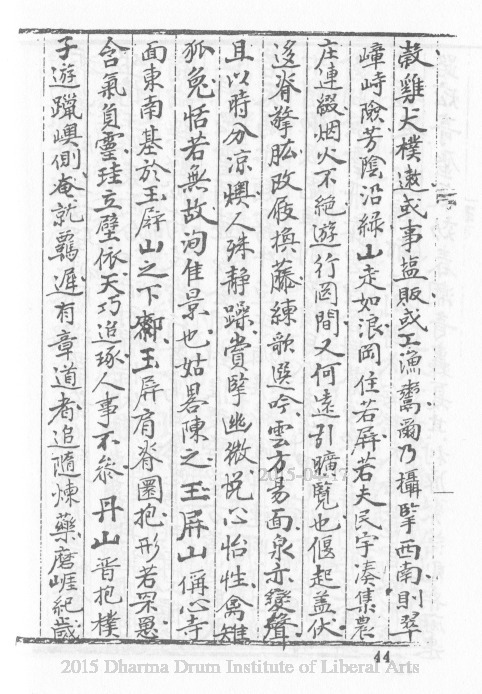 穀雞犬樸遬或事塩販或工漁鬻爾乃攝𦥑西南則翠
嶂峙險芳陰沿綠山走如浪岡住若屏若夫民宇凑集農
庄連綴烟火不絶遊行岡間又何遠引曠覽也偃起盖伏
迻脊擎肱改假換藤練歌選吟雲方易面泉亦變聲
且以時分涼燠人殊静躁賞擥幽微悅心怡性禽雉
狐兔恬若無故洵佳景也姑畧陳之玉屏山偁心寺
面東南基於玉屏山之下鄰玉屏肩脊圜抱形若罘罳
含氣負靈珪立壁依天巧追琢人事不參丹山晋抱樸
子遊躐嶼側奄就羈遲有章道者追隨煉藥磨崕紀歲
44
2015-04-17
2015 Dharma Drum Institute of Liberal Arts